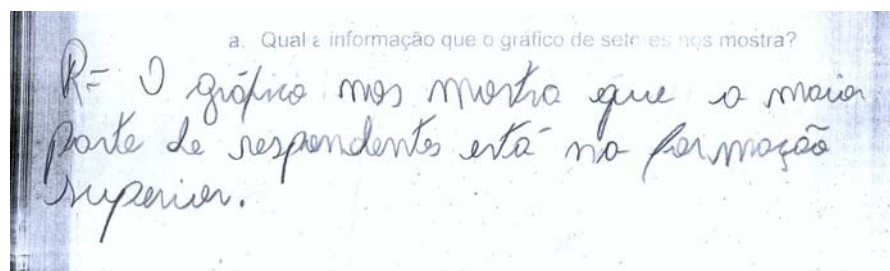 a. Qual a informação que o gráfico de setores nos mostra?
R= O gráfico nos mostra que a maior
parte de respondentes está na formação
superior.